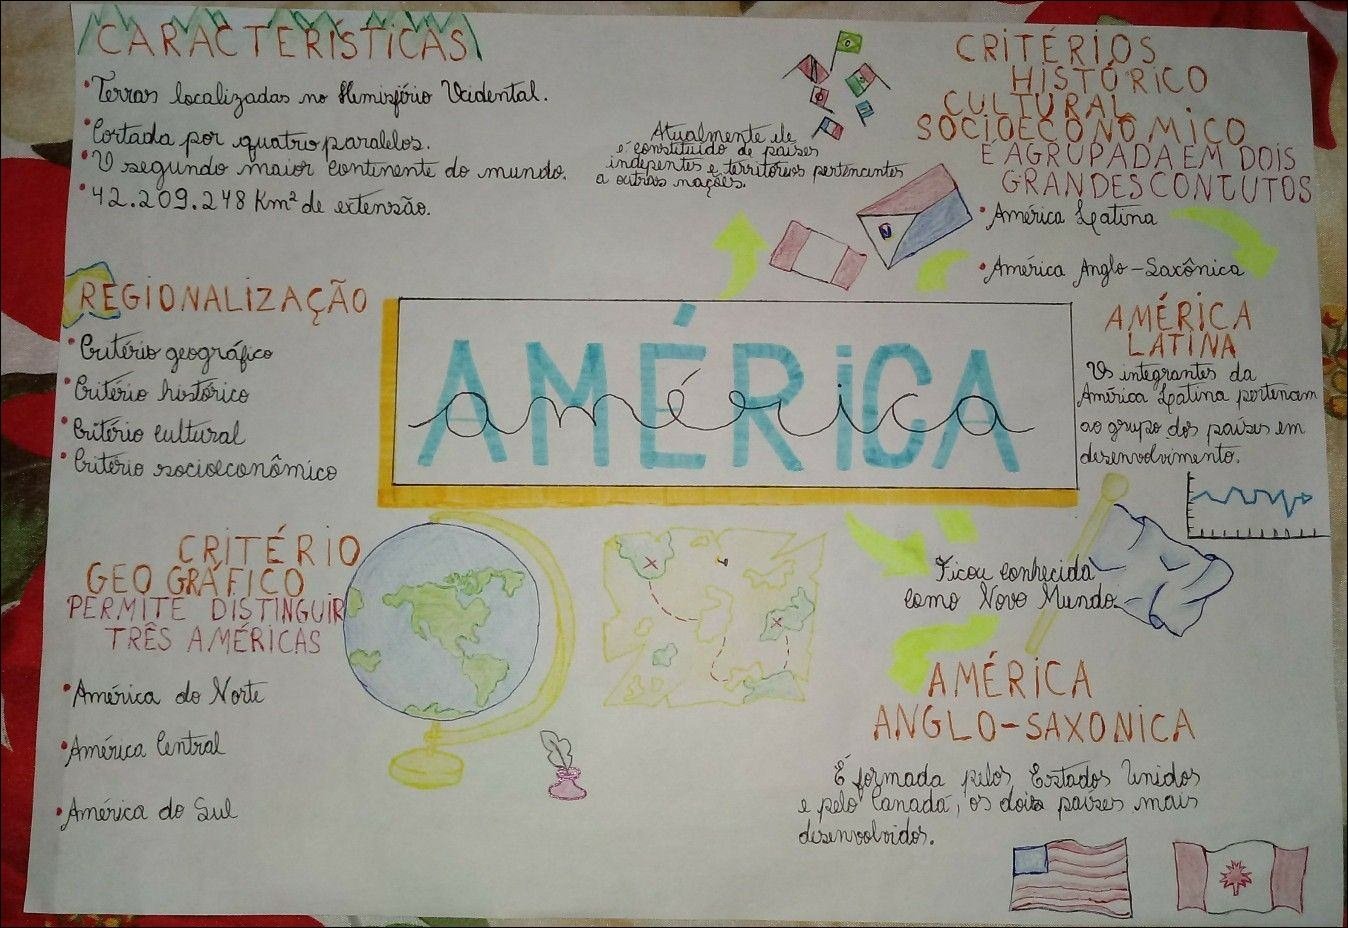 CARACTERÍSTICAS
Terras localizadas no Hemisfério Ocidental.
Cortada por quatro paralelos.
O segundo maior continente do mundo.
42.209.248 Km² de extensão.
Atualmente ele
é constituído de países
indepentes e territórios pertencentes
a outras nações.
CRITÉRIOS
HISTÓRICO
CULTURAL
SOCIOECONÔMICO
É AGRUPADA EM DOIS
GRANDES CONTUTOS
América Latina
América Anglo-Saxônica
REGIONALIZAÇÃO
Critério geográfico
Critério histórico
Critério cultural
Critério socioeconômico
AMÉRICA
américa
AMÉRICA
LATINA
Os integrantes da
América Latina pertencem
ao grupo dos países em
desenvolvimento.
CRITÉRIO
GEOGRÁFICO
PERMITE DISTINGUIR
TRÊS AMÉRICAS
América do Norte
América Central
América do Sul
Ficou conhecida
como Novo Mundo.
AMÉRICA
ANGLO-SAXONICA
É formada pelos Estados Unidos
e pelo Canadá, os dois países mais
desenvolvidos.